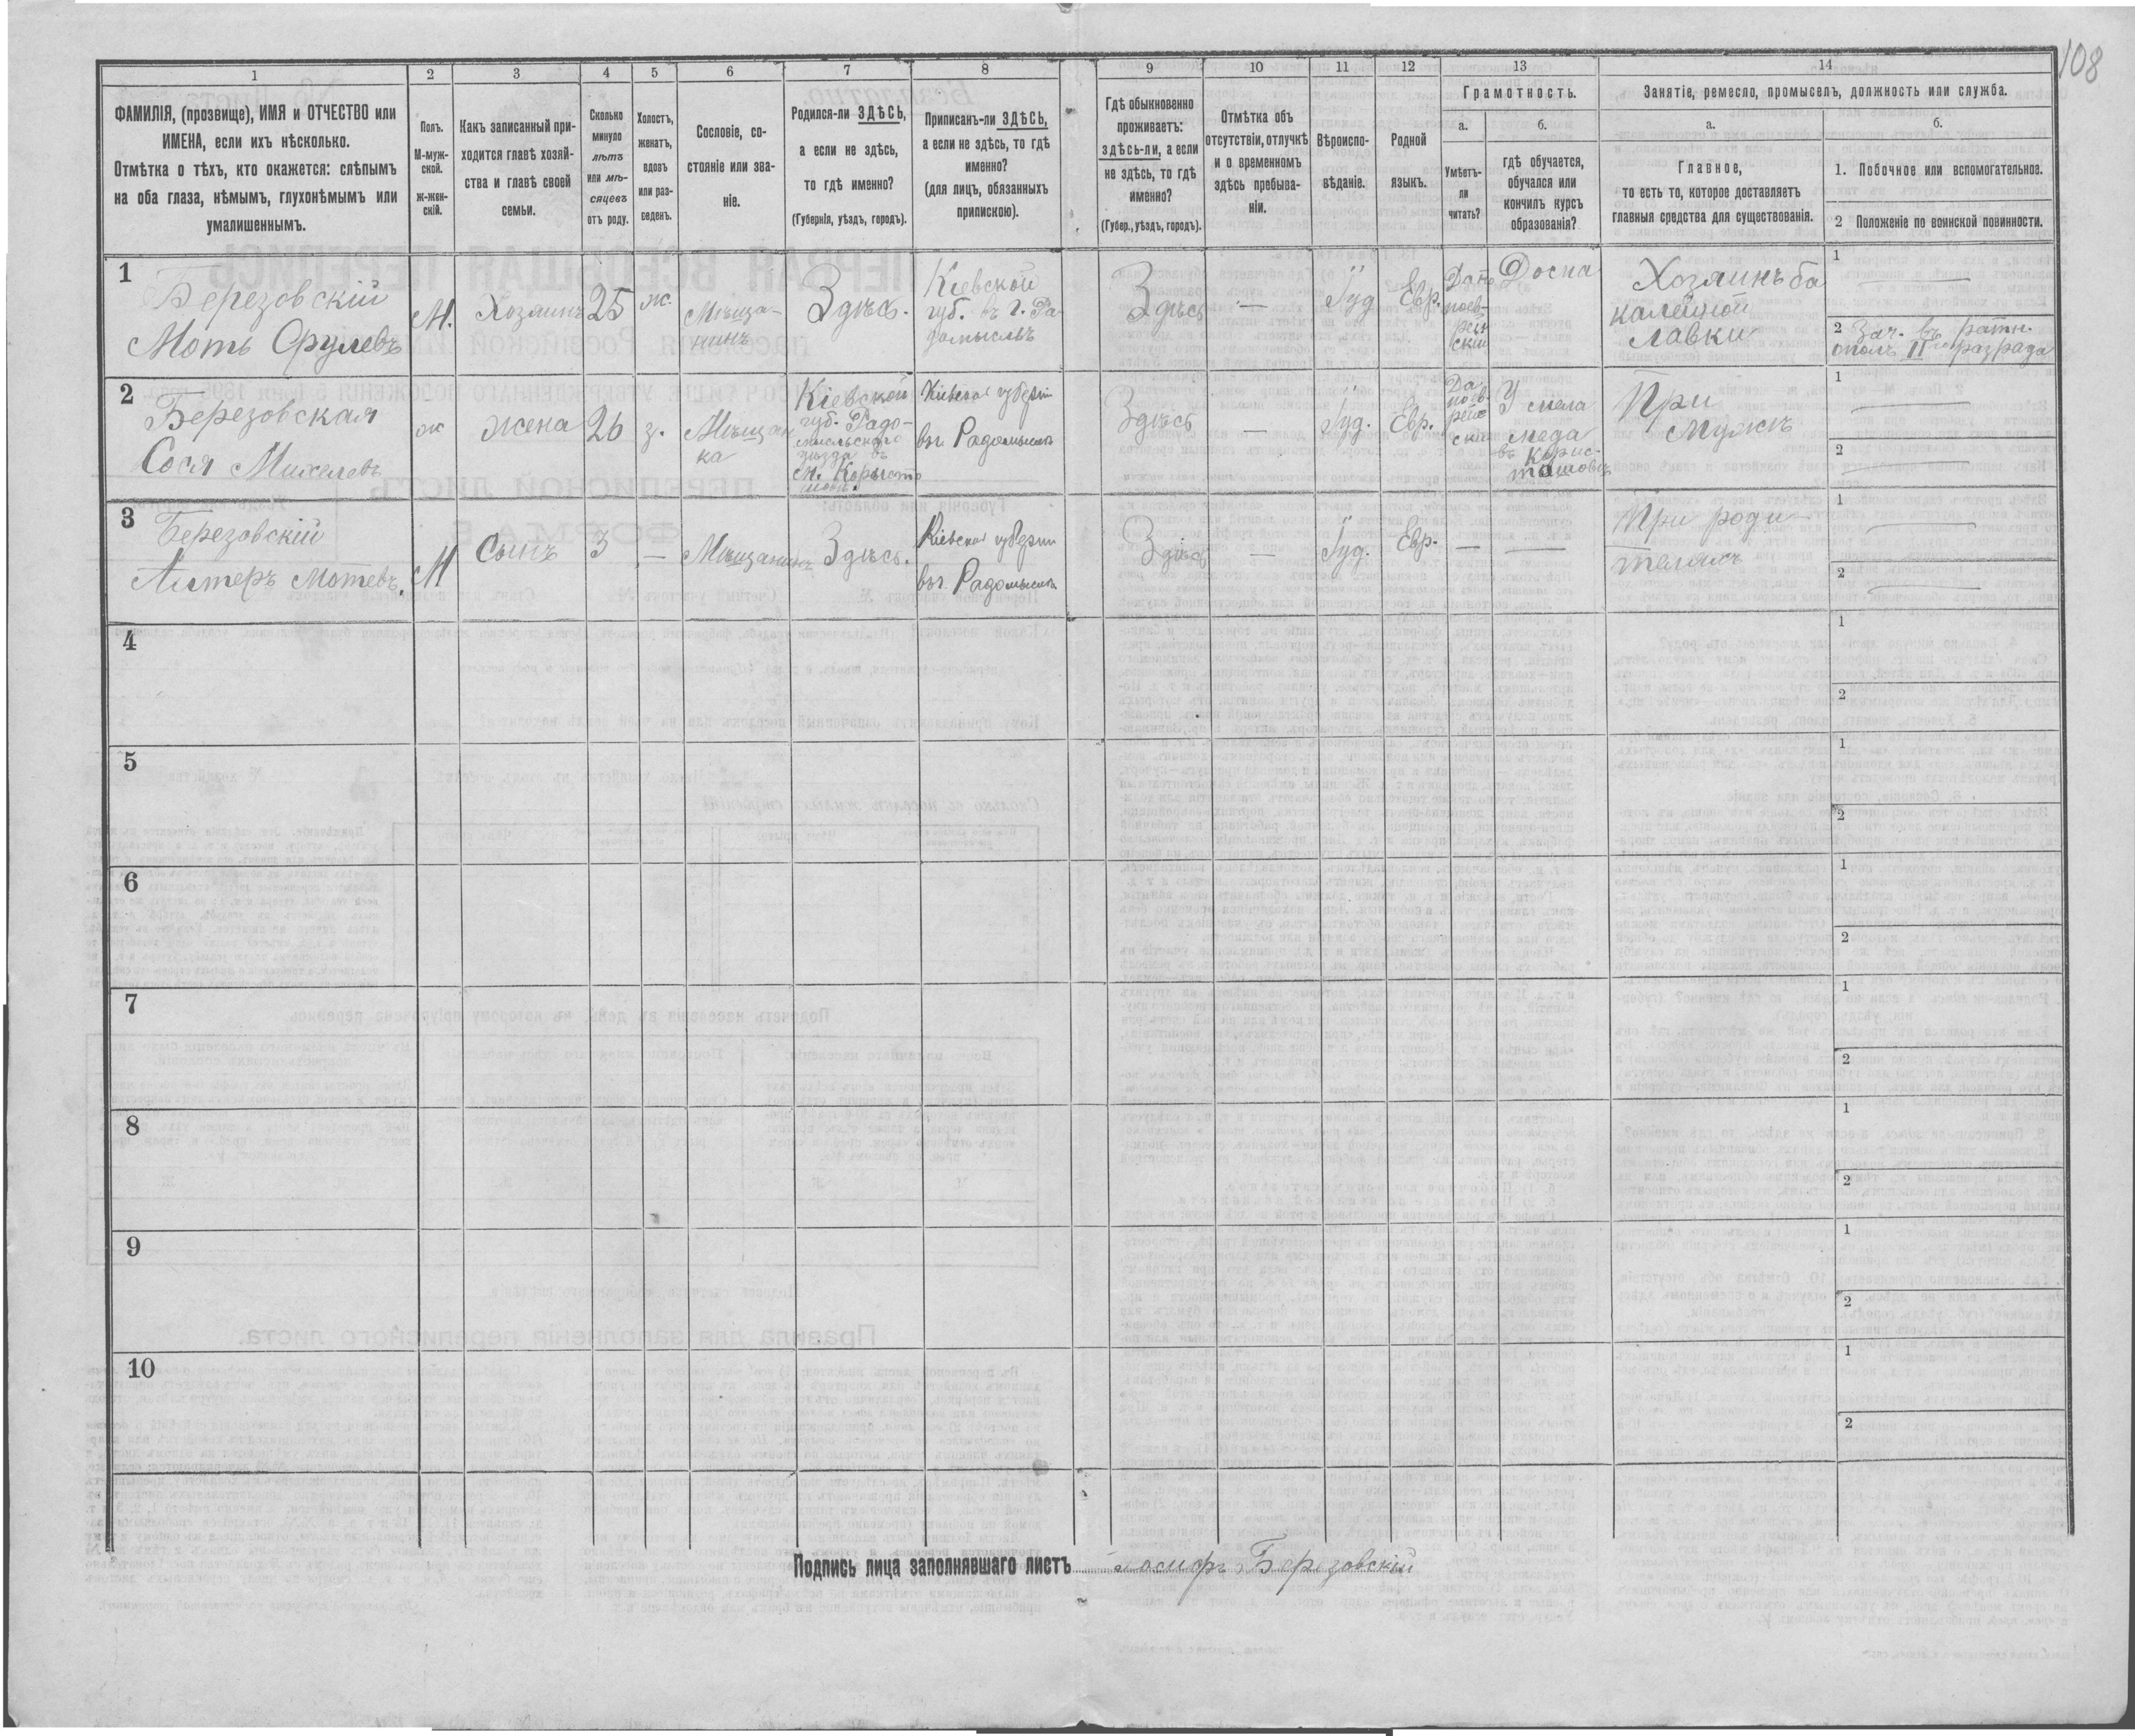 108
1
2
3
4
5
6
7
8
9
10
11
12
13
14
ФАМИЛІЯ, (прозвище), ИМЯ и ОТЧЕСТВО или
ИМЕНА, если ихъ нѣсколько.
Отмѣтка о тѣхъ, кто окажется: слѣпымъ
на оба глаза, нѣмымъ, глухонѣмымъ или
умалишеннымъ.
Полъ.
М-муж-
ской.
ж-жен-
скій.
Какъ записанный при-
ходится главѣ хозяй-
ства и главѣ своей
семьи.
Сколько
минуло
лѣтъ
или мѣ-
сяцевъ
отъ роду.
Холостъ,
женатъ,
вдовъ
или раз-
веденъ.
Сословіе, со-
стояніе или зва-
ніе.
Родился-ли ЗДѢСЬ,
а если не здѣсь,
то гдѣ именно?
(Губернія, уѣздъ, городъ).
Приписанъ-ли ЗДѢСЬ,
а если не здѣсь, то гдѣ
именно?
(для лицъ, обязанныхъ
припискою).
Гдѣ обыкновенно
проживаетъ:
здѣсь-ли, а если
не здѣсь, то гдѣ
именно?
(Губер., уѣздъ, городъ).
Отмѣтка объ
отсутствіи, отлучкѣ
и о временномъ
здѣсь пребыва-
ніи.
Вѣроиспо-
вѣданіе.
Родной
языкъ.
Грамотность.
а.
Умѣетъ-
ли
читать?
б.
гдѣ обучается,
обучался или
кончилъ курсъ
образованія?
Занятіе, ремесло, промыселъ, должность или служба.
а.
Главное,
то есть то, которое доставляетъ
главныя средства для существованія.
б.
1. Побочное или вспомогательное.
2 Положеніе по воинской повинности.
1
Березовскій
Моть Срулевъ
М.
Хозяинъ
25
ж.
Мѣща-
нинъ
Здѣсь.
Кіевской
губ. въ г. Ра-
домыслѣ
Здѣсь
—
Іуд
Евр.
Да по
евр-
ей
скій
Дома
Хозяинъ ба
калейной
лавки
1
—
2 Зач. въ ратн.
ополч. II разряда
2
Березовская
Сося Михелевъ
ж
жена
26
з.
Мѣщан
ка
Кіевской
губ. Радо-
мысльскаго
уѣзда въ
м. Корысто
Кіевской губерніи
въ г. Радомыслѣ
Здѣсь
—
Іуд.
Евр.
Да
по ев-
рей
ски
У мела
меда
въ Корис-
ташовѣ
При
мужѣ
1
—
2
3
Березовскій
Алтеръ Мотевъ.
М
Сынъ
3
—
Мѣщанинъ
Здѣсь.
Кіевской губерніи
въ г. Радомыслѣ
Здѣсь
—
Іуд.
Евр.
—
—
При роди-
теляхъ
1
—
2
—
4
1
2
5
1
2
6
1
2
7
1
2
8
1
2
9
1
2
10
1
2
Подпись лица заполнявшаго листъ Іосифъ Березовскій